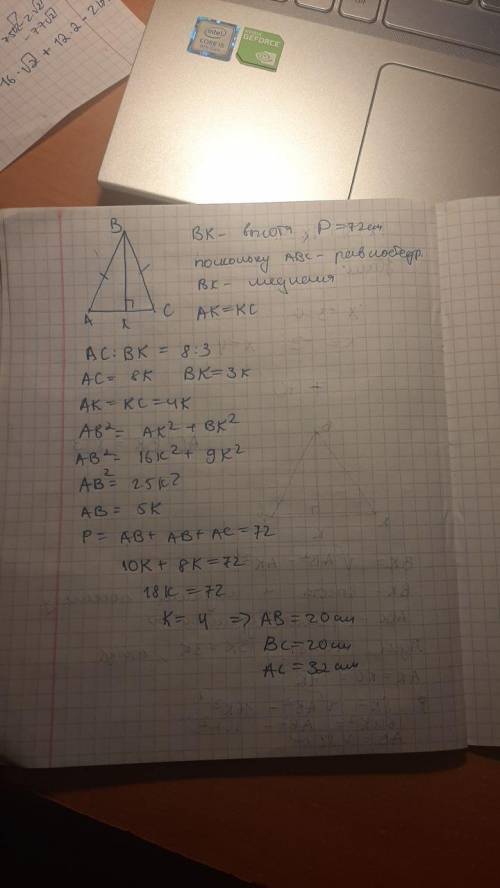 16·√2 + 12·2 - 2
intel
CORE i5
GEFORCE
B
A
C
BK- высота ; P=72см
поскольку ABC- равнобедр.
BK- медиана
AK=KC
AC:BK = 8:3
AC= 8K BK=3K
AK = KC=4K
AB²= AK²+BK²
AB²= 16K²+ 9K²
AB²= 25K²
AB= 5K
P= AB+ AB+ AC=72
10K+ 8K=72
18K=72
K= 4 => AB=20см
BC=20см
AC=32см